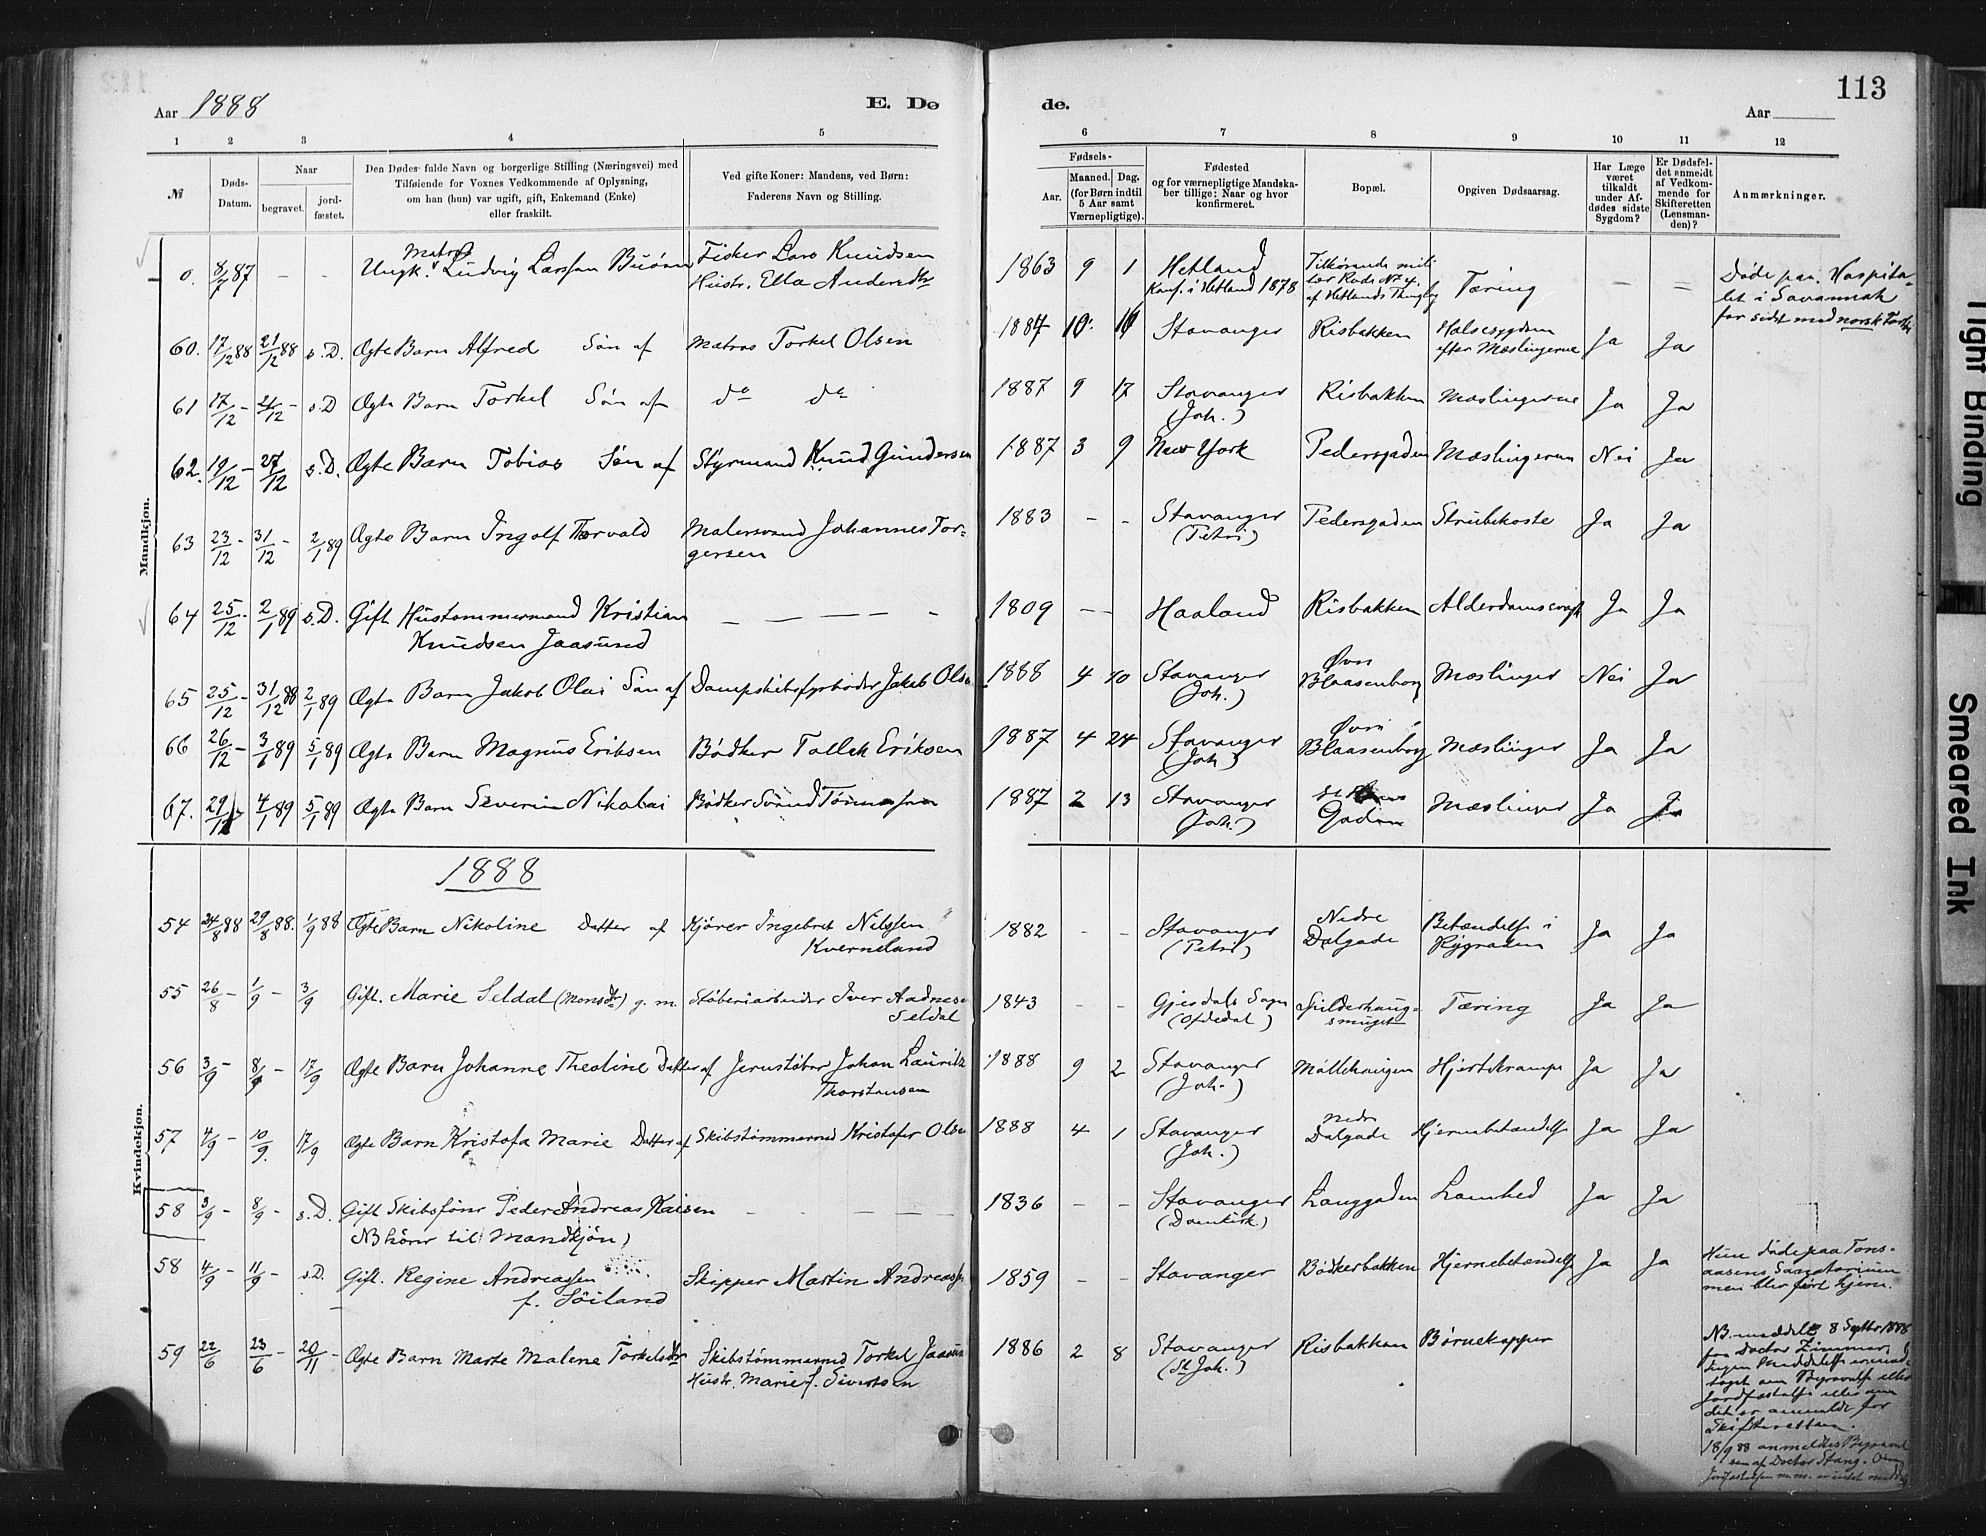 113
Aar 1888
E. Dø
de.
Aar
1 2 3 4 5
6 7 8 9 10 11 12
№
Døds-Datum.
Naar
begravet.
jord-fæstet.
Den Dødes fulde Navn og borgerlige Stilling (Næringsvei) med
Tilføiende for Voxnes Vedkommende af Oplysning,
om han (hun) var ugift, gift, Enkemand (Enke)
eller fraskilt.
Ved gifte Koner: Mandens, ved Børn:
Faderens Navn og Stilling.
Fødsels-
Aar.
Maaned. Dag.
(for Børn indtil
5 Aar samt
Værnepligtige).
Fødested
og for værnepligtige Mandska-
ber tillige: Naar og hvor
konfirmeret.
Bopæl.
Opgiven Dødsaarsag.
Har Læge
været
tilkaldt
under Af-
dødes sidste
Sygdom?
Er Dødsfal-
det anmeldt
af Vedkom-
mende for
Skifteretten
(Lensman-
den)?
Anmærkninger.
Mandkjøn.
0. 8/7 87 - - Ungk. Matros Ludvig Larssen Buøen Fisker Lars Knudsen
Hustr. Ella Andersdtr
1863 9 1 Hetland
Konf. i Hetland 1878
Tæring - -
Døde paa Hospita-
let i Savannah
for sidst med norsk
60. 17/12 88 21/12 88 s.D. Ægte Barn Alfred Søn af Matros Torkel Olsen
1884 10 Stavanger Risbakken Halssygdom
efter Mæslingerne Ja Ja
61 17/12 - 21/12 - s.D Ægte Barn Torkel Søn af do do
1887 9 17 Stavanger
(Joh.) Risbakken Mæslingerne Ja Ja
62. 19/12 - 27/12 s.D. Ægte Barn Tobias Søn af Styrmand Knud Gundersen
1887 3 9 New York Pedersgaden Mæslingerne Nei Ja
63 23/12 - 31/12 - 2/1 89 Ægte Barn Ingolf Thorvald Malersvend Johannes Tor-
gersen
1883 - - Stavanger
(Petri) Pedersgaden Strubehoste Ja Ja
64 25/12 - 2/1 89 s.D. Gift Hustømmermand Kristian
Knudsen Jaasund
1809 - - Haaland Risbakken Alderdomssvagh Ja Ja
65 25/12 - 31/12 88 2/1 89 Ægte Barn Jakob Olai Søn af Dampskibsfyrbøder Jakob Olsen
1888 4 10 Stavanger
(Joh.) Øvre
Blaasenborg Mæslinger Nei Ja
66 26/12 - 3/1 89 5/1 89 Ægte Barn Magnus Eriksen Bødker Tollak Eriksen
1887 4 24 Stavanger
(Joh) Øvre
Blaasenborg Mæslinger Ja Ja
67. 29/12 4/1 89 5/1 89 Ægte Barn Severin Nikolai Bødker Svend Tønnessen
1887 2 13 Stavanger
(Joh.) Gaden Mæslinger Ja Ja
1888
Kvindekjøn.
54 24/8 88 29/8 88. 1/9 88 Ægte Barn Nikoline Datter af Kjører Ingebret Nilssen
Kverneland
1882 - - Stavanger
(Petri) Nedre
Dalgade Betændelse i
Rygraden Ja Ja
55 26/8 - 1/9 - 3/9 Gift. Marie Seldal (Monsdtr) g. m. Støberiarbeider Iver Aadnesen
Seldal
1843 - - Gjesdals Sogn
(Ofdedal) Spilderhaug-
smuget Tæring Ja Ja
56 3/9 - 8/9 - 17/9 Ægte Barn Johanne Theoline Datter af Jernstøber Johan Lauritz
Thorstensen
1888 9 2 Stavanger
(Joh.) Møllehaugen Hjertekrampe Ja Ja
57 4/9 - 10/9. 17/9 Ægte Barn Kristofa Marie Datter af Skibstømmermd Kristofer Olsen
1888 4 1 Stavanger
(Joh.) Nedre
Dalgade Hjernebetændelse Ja Ja
58 3/9 - 8/9 - s.D. Gift Skibsfører Peder Andreas Kaisen
NB hører til Mandkjøn)
1836 - - Stavanger
(Domkirk.) Langgaden Lamhed Ja Ja
58 4/9 - 11/9 - s.D. Gift. Regine Andreassen
f. Søiland Skipper Martin Andreassen
1859 - - Stavanger Bødkerbakken Hjernebetændelse Ja Ja
Hun døde paa Tons-
aasens Sanatorium
men blev ført hjem.
59 22/6 - 23/6 - 20/11 - Ægte Barn Marte Malene Torkelsdtr Skibstømmermd Torkel Jaasund
Hustr. Marie f. Sivertsen
1886 2 8 Stavanger
(St Joh.) Risbakken Børnekopper
NB. meddelt 8 Septbr 1888
fra Doctor Zimmer,
Ingen
eller
Jordfæstelse eller om
det er anmeldt for
Skifteretten.
18/9 88 anmeldtes
af Doctor Stang.
Tight Binding
Smeared Ink